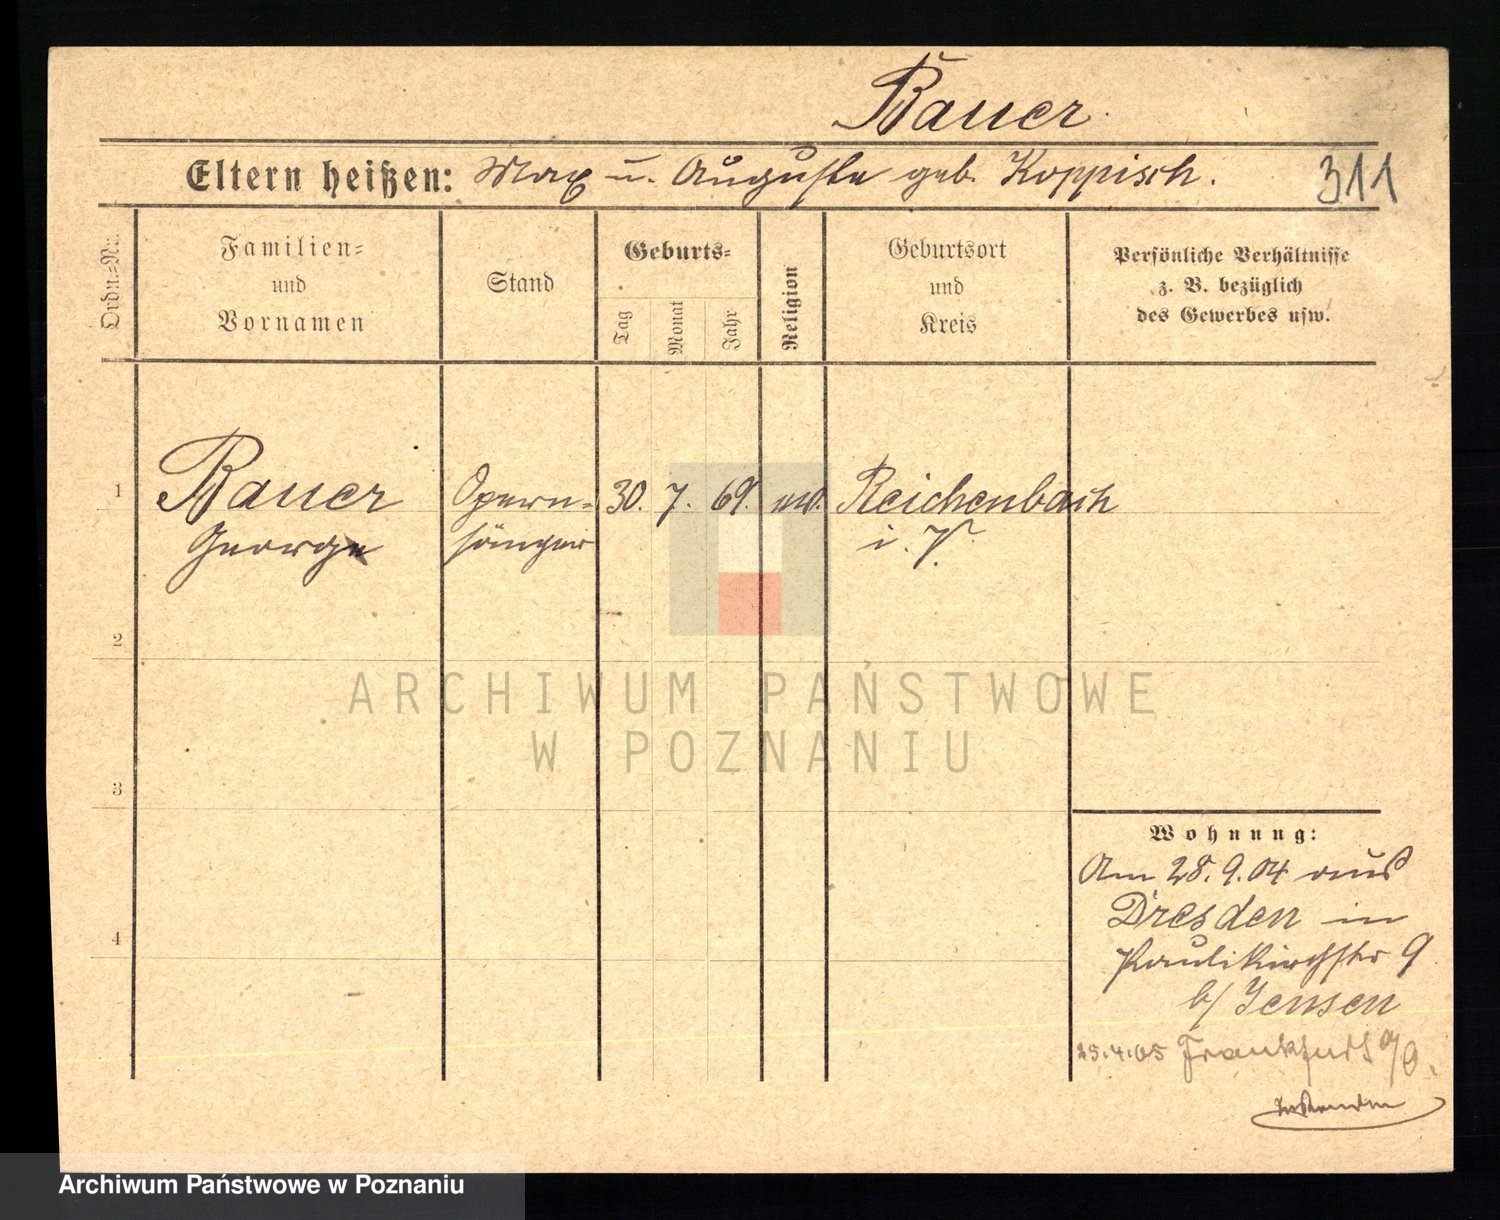 Bauer.
Eltern heißen: Max u. Auguste geb. Koppisch.
311
Ordn.=Nr.
Familien=
und
Vornamen
Stand
Geburts=
Tag
Monat
Jahr
Religion
Geburtsort
und
Kreis
Persönliche Verhältnisse
z. B. bezüglich
des Gewerbes usw.
1
Bauer
George
Opern=
sänger
30. 7. 69. ev.
Reichenbach
i. V.
2
3
4
Wohnung:
Am 28.9.04 aus
Dresden in
Paulikirchstr 9
b/ Jensen
25.4.05 Frankfurt a/O.
ARCHIWUM PAŃSTWOWE
W POZNANIU
Archiwum Państwowe w Poznaniu